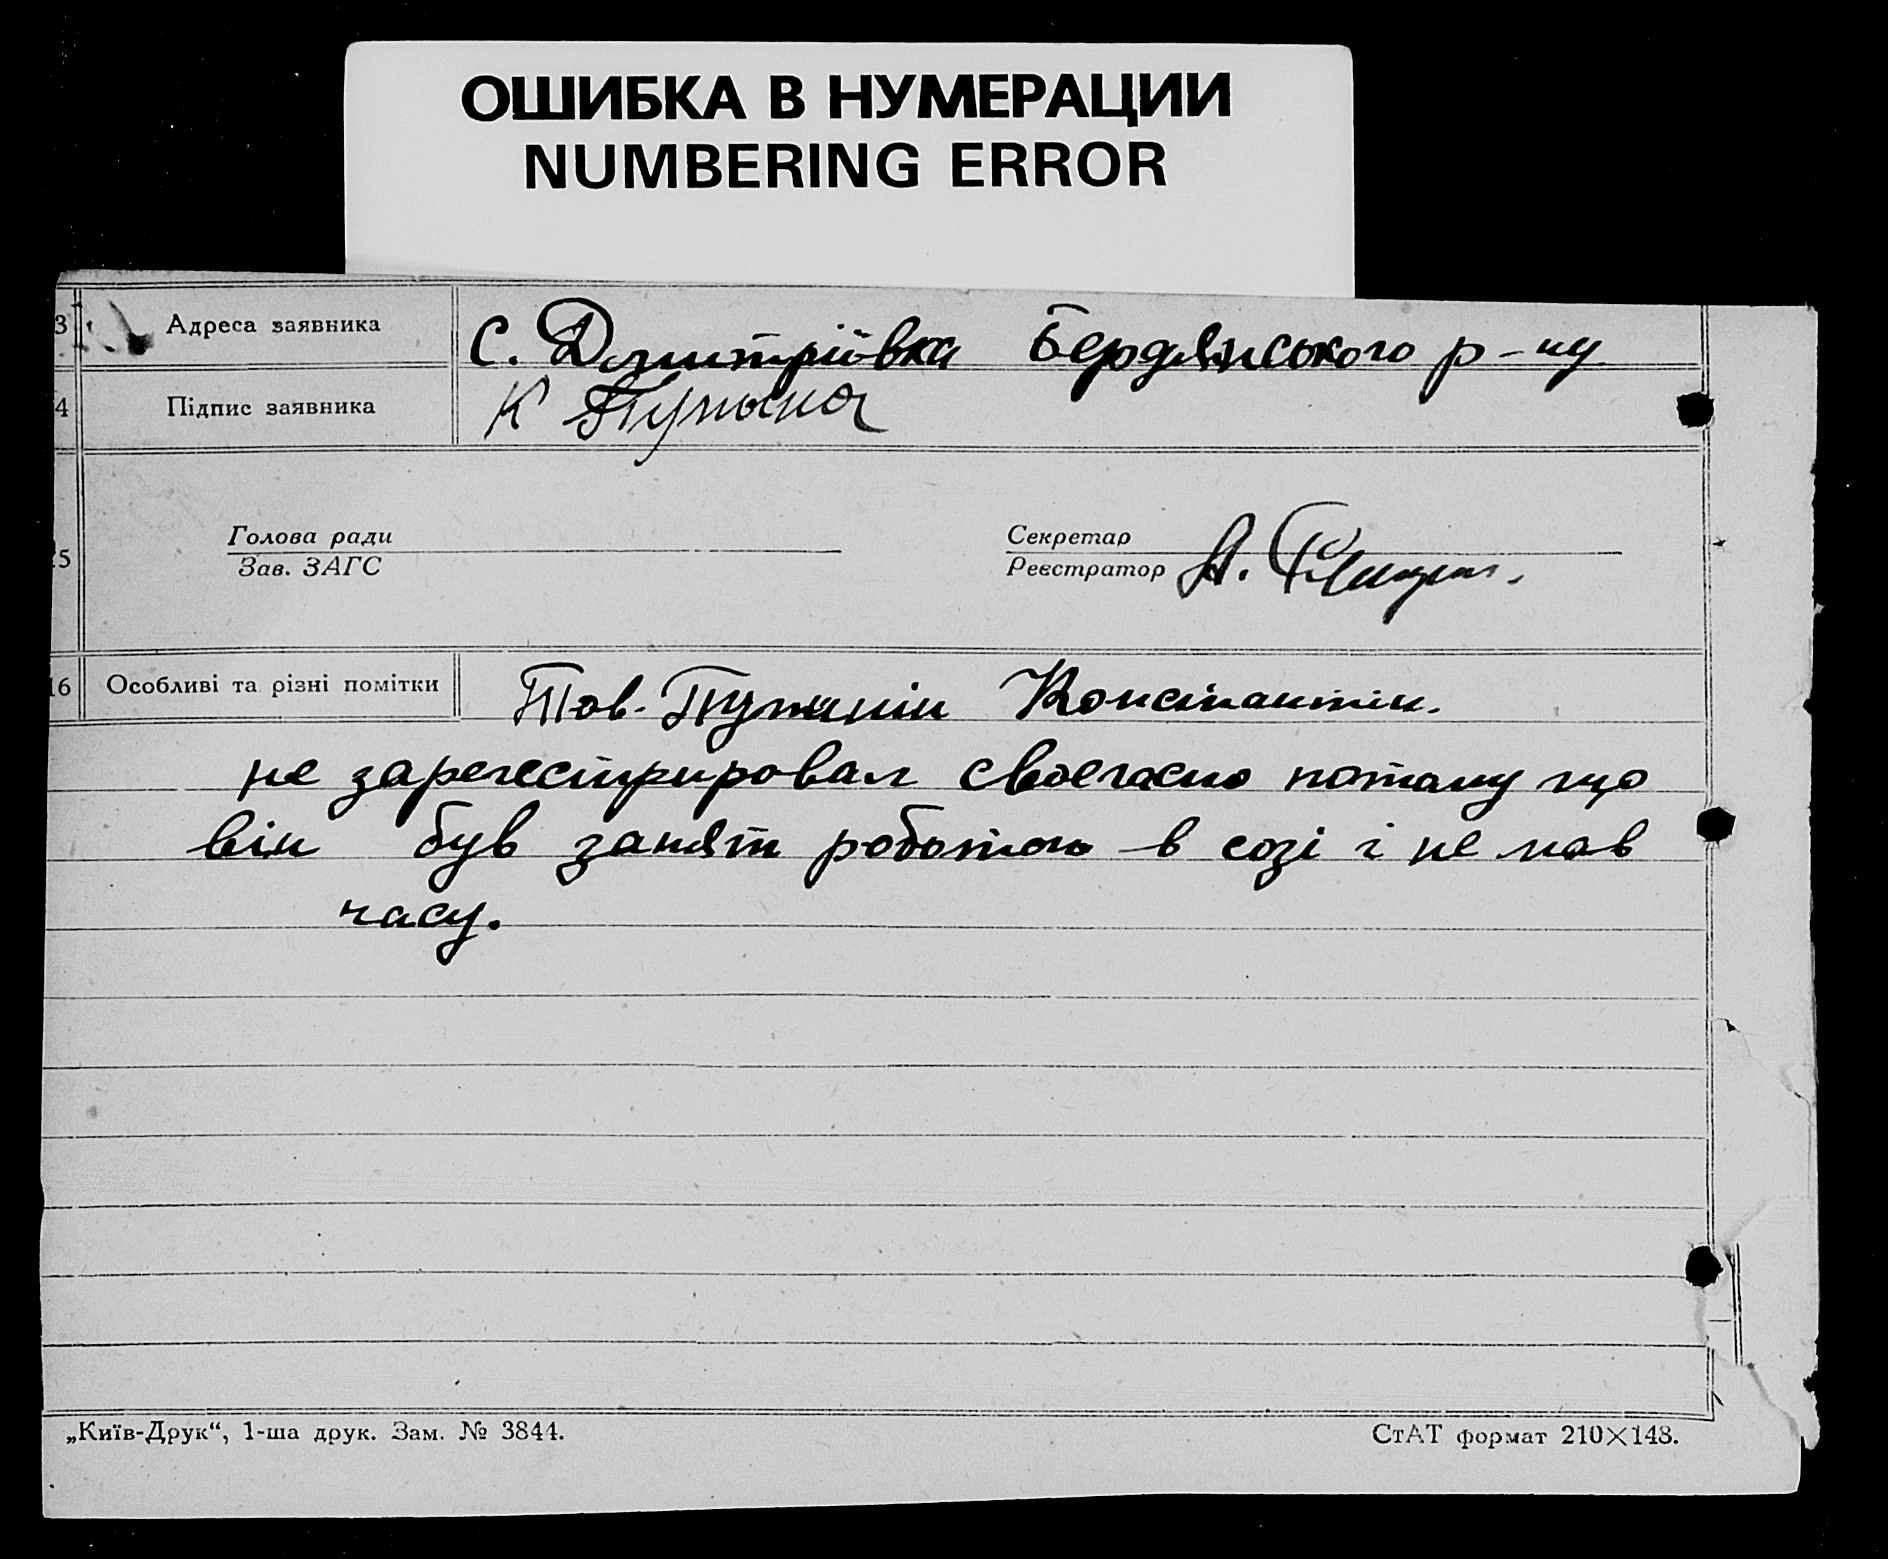 ОШИБКА В НУМЕРАЦИИ
NUMBERING ERROR
3 Адреса заявника с. Дмитріївка Бердянського р-ну
4 Підпис заявника К
Голова ради Секретар
15 Зав. ЗАГС Реєстратор А.
16 Особливі та різні помітки Тов. Константін.
не зарегестрировал своєчасно потому що
він був занят роботою в созі і не мав
часу.
„Київ-Друк“, 1-ша друк. Зам. № 3844. СтАТ формат 210×148.